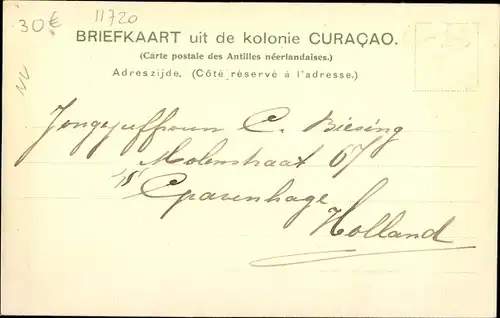 30€ 11720
BRIEFKAART uit de kolonie CURAÇAO.
(Carte postale des Antilles néerlandaises.)
Adreszijde. (Côté réservé à l'adresse.)
Jongejuffrouw C. Biesing
Molenstraat 67
's Gravenhage
Holland